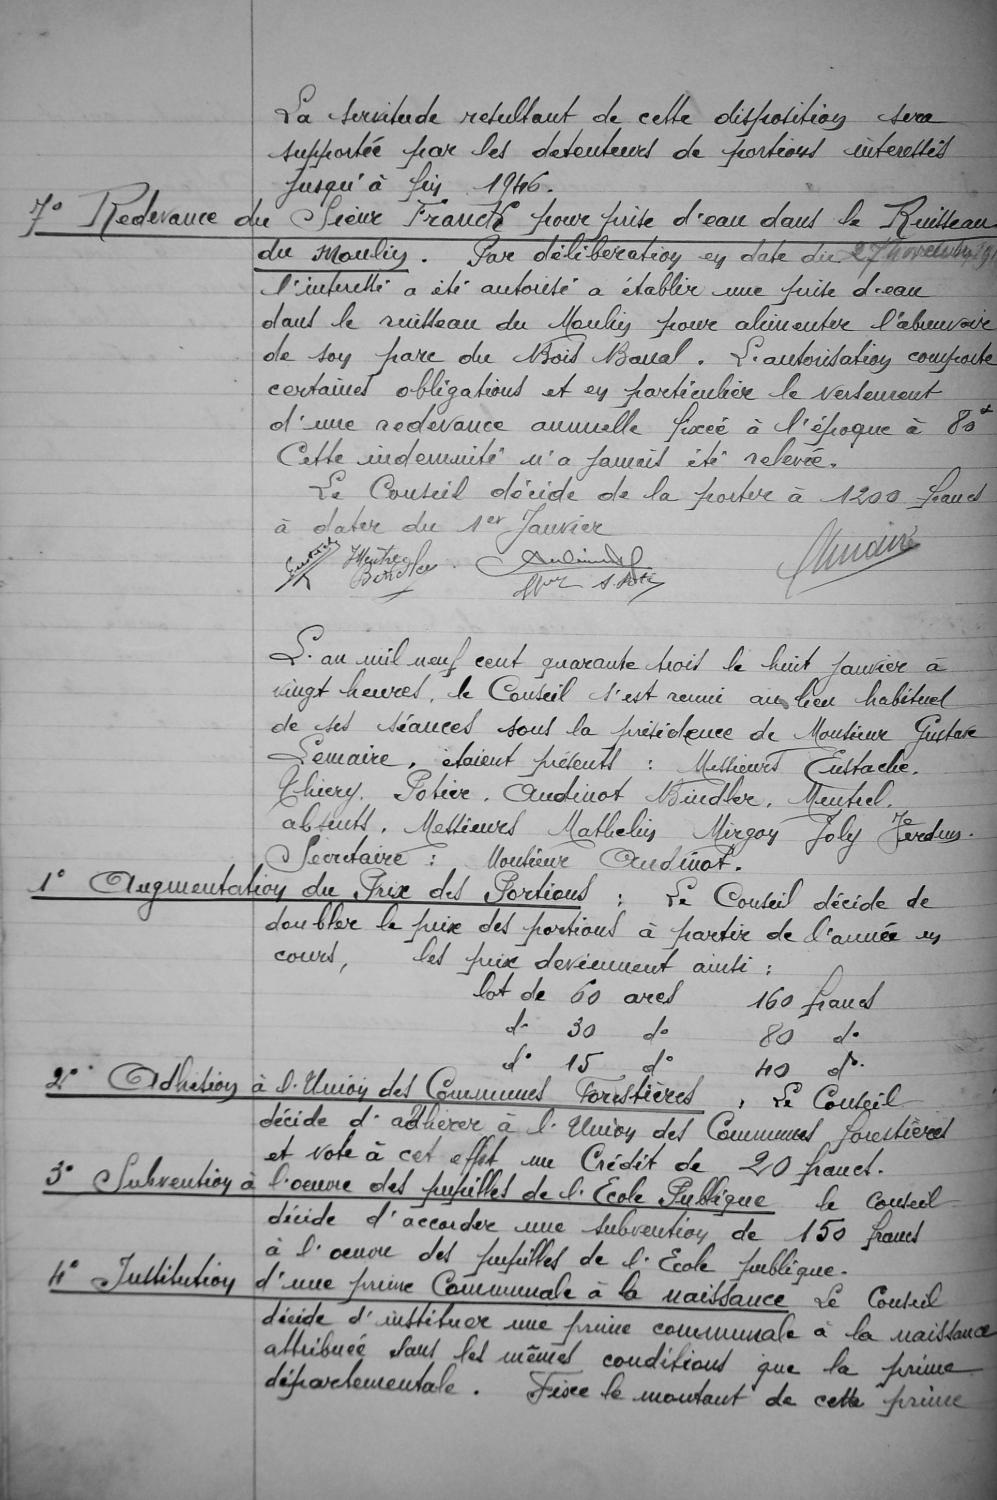 La servitude resultant de cette disposition sera
supportée par les detenteurs de portions interessés
jusqu'à fin 1946.
7° Redevance du Sieur Franck pour prise d'eau dans le Ruisseau
du Moulin. Par déliberation en date du 27 novembre
l'interessé a été autorisé a établir une prise d'eau
dans le ruisseau du Moulin pour alimenter l'abreuvoir
de son parc du Bois Banal. L'autorisation comporte
certaines obligations et en particulier le versement
d'une redevance annuelle fixée à l'époque à 80f
Cette indemnité n'a jamais été relevée.
Le Conseil décide de la porter à 1200 francs
à dater du 1er Janvier
L'an mil neuf cent quarante trois le huit janvier à
vingt heures, le Conseil s'est reuni au lieu habituel
de ses séances sous la présidence de Monsieur Gustave
Lemaire, étaient présents : Messieurs Eustache.
Thiery. Potier. Audinot Bindler. Mentrel.
absents. Messieurs Mathelin Mirgon Joly
Secretaire : Monsieur Audinot.
1° Augmentation du Prix des Portions : Le Conseil décide de
doubler le prix des portions à partir de l'année en
cours, les prix deviennent ainsi :
lot de 60 ares 160 francs
d° 30 d° 80 d°
d° 15 d° 40 d°.
2° Adhésion à l'Union des Communes Forestières, Le Conseil
décide d'adherer à l'Union des Communes forestières
et vote à cet effet un Crédit de 20 francs.
3° Subvention à l'oeuvre des pupilles de l'Ecole Publique le Conseil
décide d'accorder une subvention de 150 francs
à l'oeuvre des pupilles de l'Ecole publique.
4° Institution d'une prime Communale à la naissance Le Conseil
décide d'instituer une prime communale à la naissance
attribuée dans les mêmes conditions que la prime
départementale. Fixe le montant de cette prime